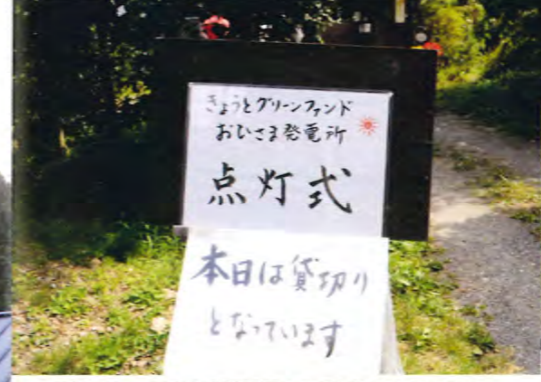 きょうとグリーンファンド
おひさま発電所
点灯式
本日は貸切り
となっています